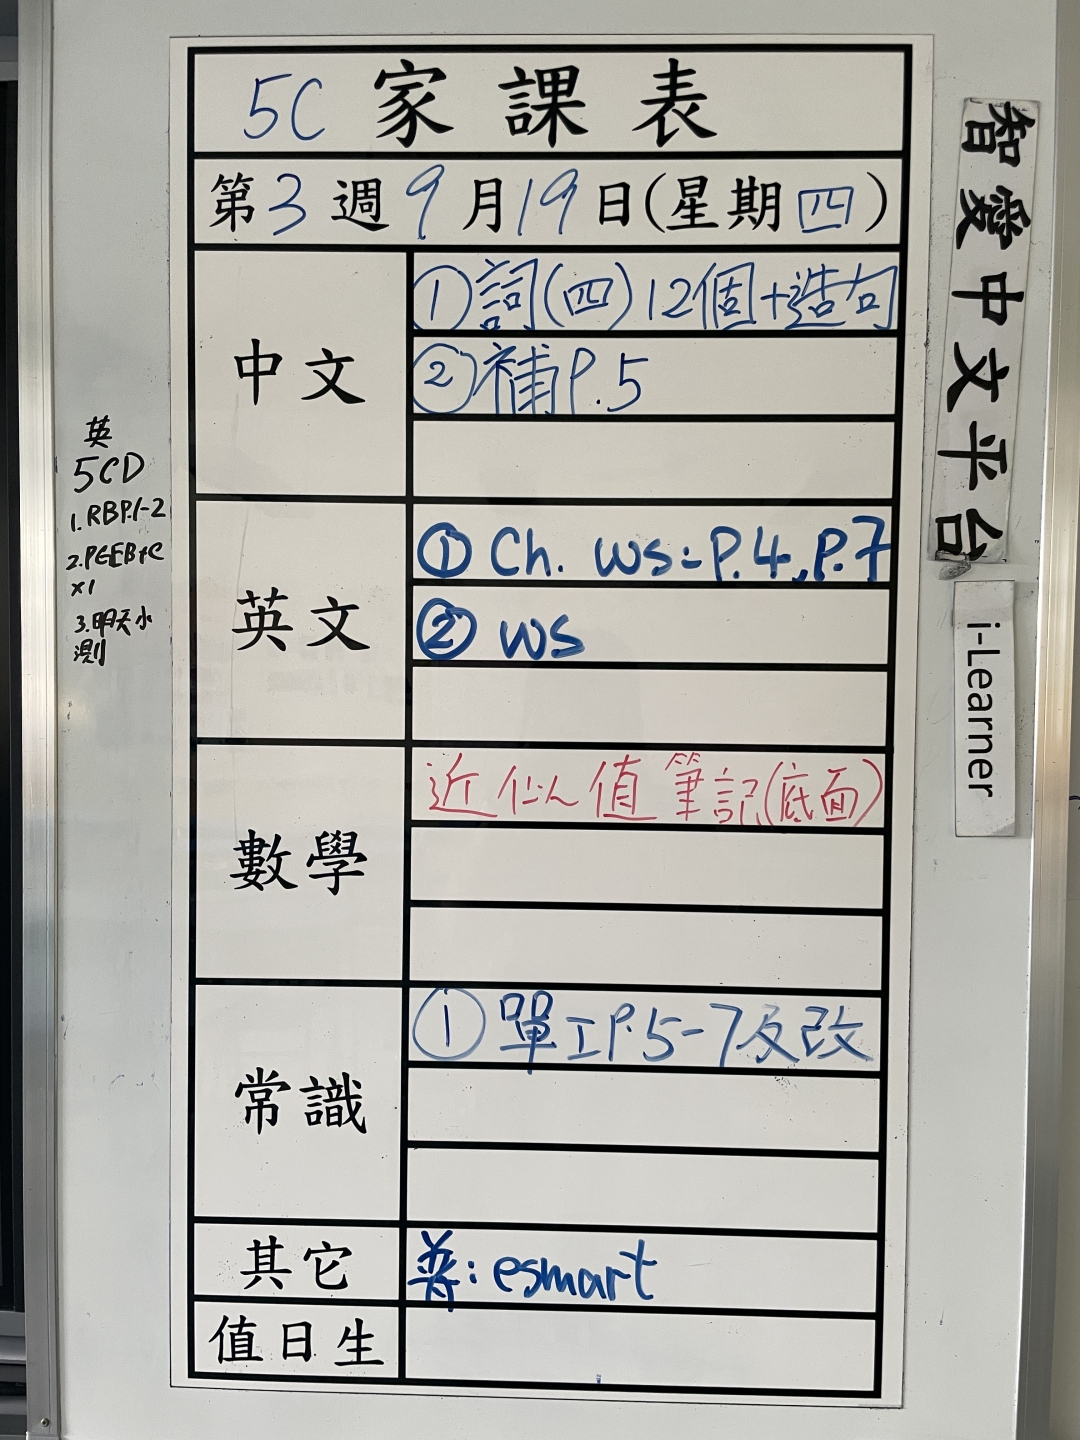 5C 家課表
第3週9月19日(星期四)
中文
①詞(四)12個+造句
②補P.5
英文
① Ch. WS: P.4, P.7
② WS
數學
近似值筆記(底面)
常識
①單工P.5-7及改
其它
普: esmart
值日生
英
5CD
1. RBP.1-2
2. PGEB+C
x1
3. 明天小
測
智愛中文平台
i-Learner